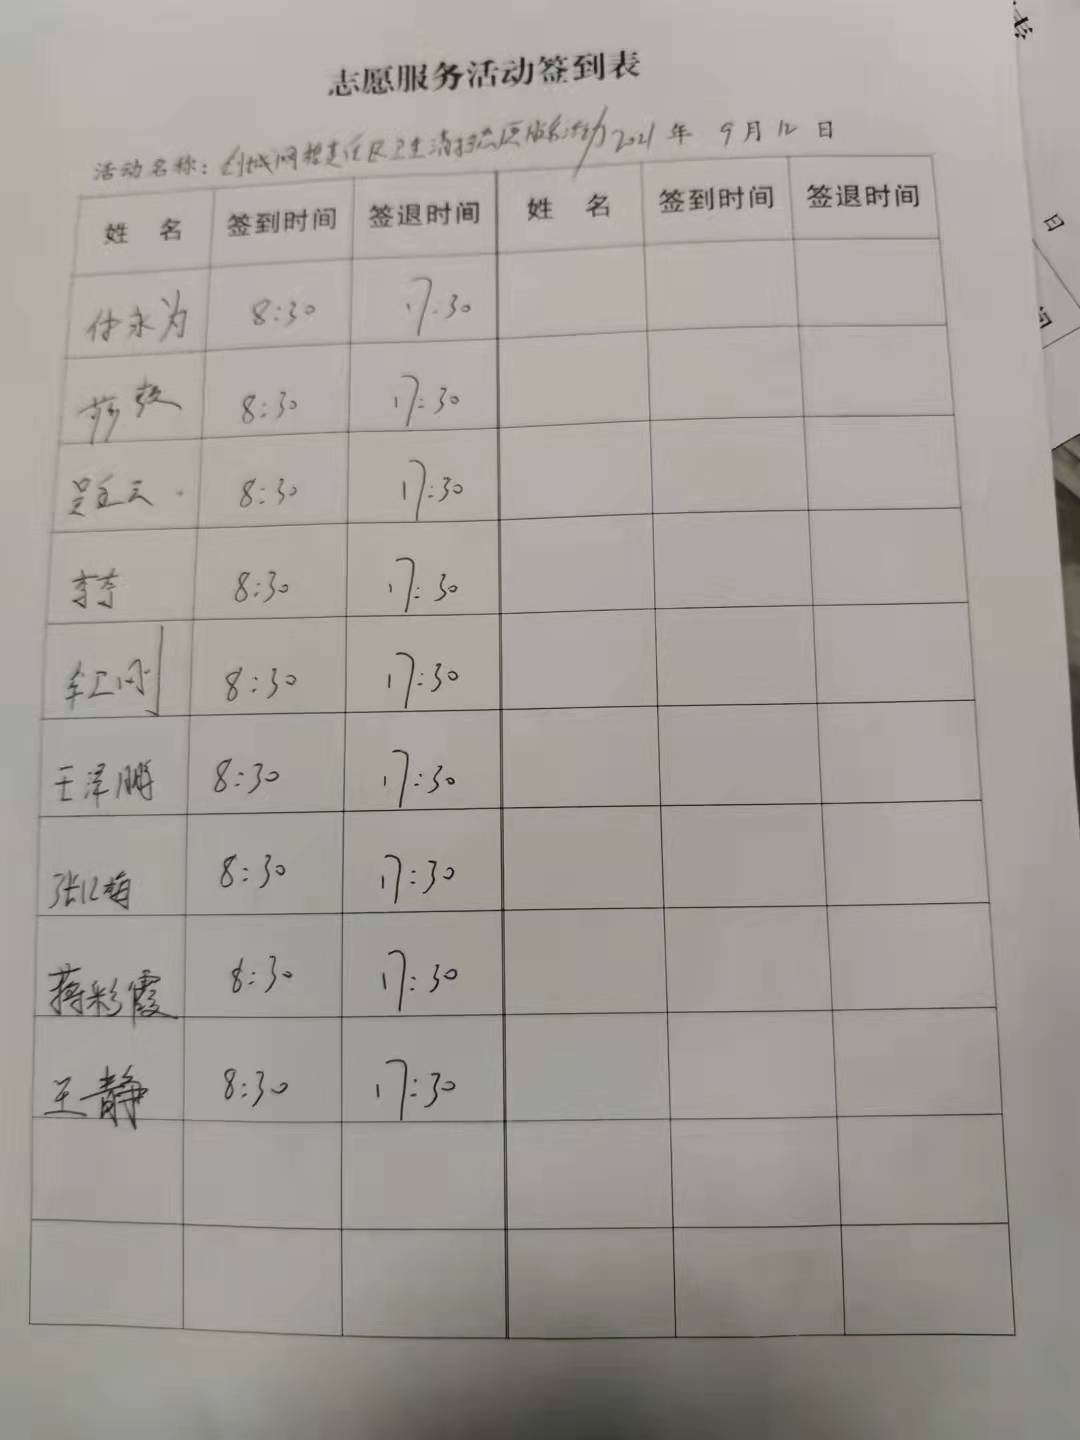 志愿服务活动签到表
活动名称：创城网格责任区卫生清扫志愿服务活动 2021 年 9 月 12 日
姓 名 签到时间 签退时间 姓 名 签到时间 签退时间
付永为 8:30 17:30
8:30 17:30
8:30 17:30
李 8:30 17:30
8:30 17:30
王泽鹏 8:30 17:30
张 梅 8:30 17:30
蒋彩霞 8:30 17:30
王静 8:30 17:30
日